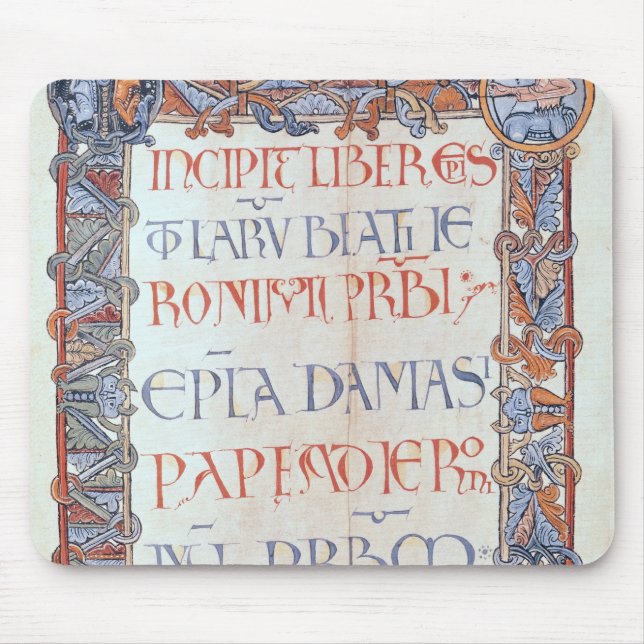 INCIPIT LIBER EPIS
TLARV BEATI IE
RONIMI PRBI
EPLA DAMASI
PAPE AD IERONI
MU PRBM